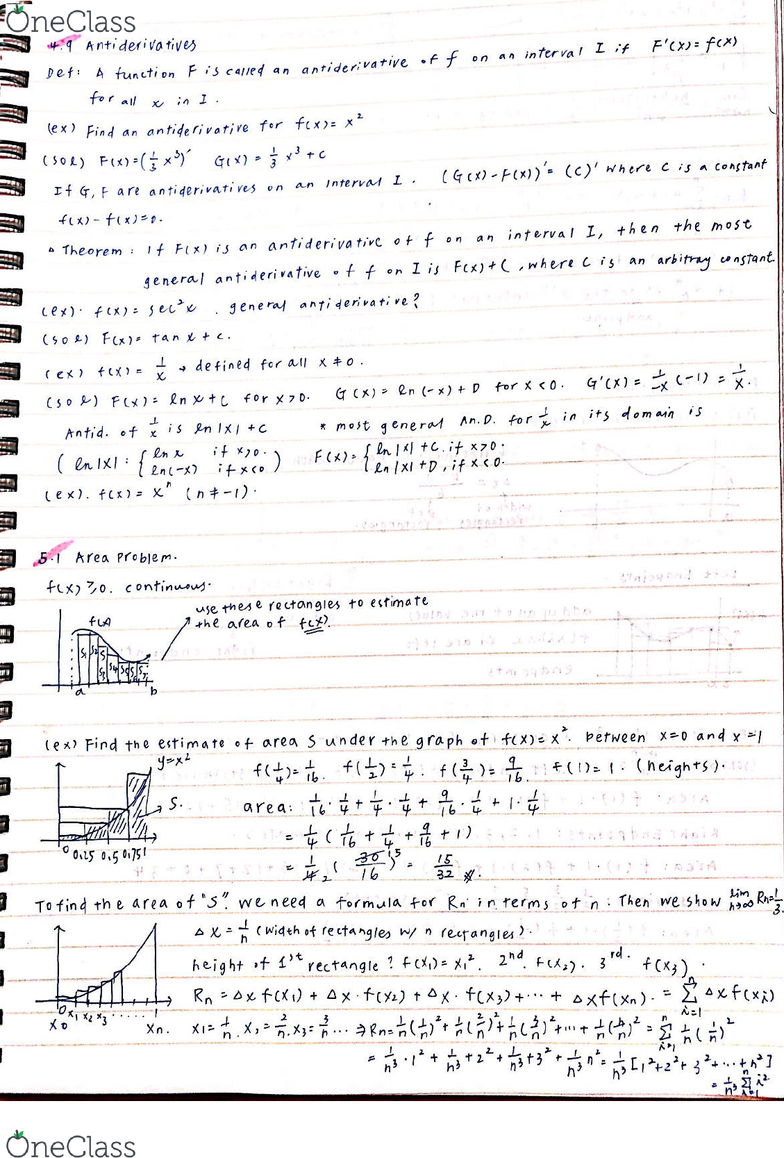 OneClass
4.9 Antiderivatives
Def: A function F is called an antiderivative of f on an interval I if F'(x) = f(x)
for all x in I.
(ex) Find an antiderivative for f(x) = x²
(sol) F(x) = (1/3 x³)' G(x) = 1/3 x³ + C
If G, F are antiderivatives on an Interval I. (G(x) - F(x))' = (C)' where C is a constant
f(x) - f(x) = 0.
△ Theorem: If F(x) is an antiderivative of f on an interval I, then the most
general antiderivative of f on I is F(x)+C, where C is an arbitray constant
(ex). f(x) = sec²x. general antiderivative?
(sol) F(x) = tan x + c.
(ex) f(x) = 1/x → defined for all x ≠ 0.
(sol) F(x) = ln x + C for x>0. G(x) = ln(-x) + D for x < 0. G'(x) = 1/-x (-1) = 1/x.
Antid. of 1/x is ln|x| + C * most general An.D. for 1/x in its domain is
(ln|x| : { ln x if x>0. ln(-x) if x<0 ) F(x) = { ln|x| + C. if x>0. ln|x| + D, if x<0.
(ex). f(x) = xⁿ (n ≠ -1).
5.1 Area Problem.
f(x) ≥ 0. continuous.
use these rectangles to estimate
the area of f(x).
f(x)
S1 S2 S3 S4 S5 S6 S7
a b
(ex) Find the estimate of area S under the graph of f(x) = x². between x=0 and x=1
y=x²
f(1/4) = 1/16. f(1/2) = 1/4. f(3/4) = 9/16. f(1) = 1. (heights).
S.
area: 1/16 · 1/4 + 1/4 · 1/4 + 9/16 · 1/4 + 1 · 1/4
= 1/4 (1/16 + 1/4 + 9/16 + 1)
0 0.25 0.5 0.75 1
= 1/4 2 (30/16) 15 = 15/32.
To find the area of "S". we need a formula for Rn in terms of n. Then we show lim n→∞ Rn = 1/3.
△x = 1/n (width of rectangles w/ n rectangles).
height of 1st rectangle? f(x1) = x1². 2nd. f(x2). 3rd. f(x3).
Rn = △x f(x1) + △x · f(x2) + △x · f(x3) + ··· + △x f(xn). = Σ i=1 n △x f(xi)
0 x1 x2 x3 ······ 1
x0 xn. x1 = 1/n. x2 = 2/n. x3 = 3/n ··· ⇒ Rn = 1/n (1/n)² + 1/n (2/n)² + 1/n (3/n)² + ··· + 1/n (n/n)² = Σ i=1 n 1/n (i/n)²
= 1/n³ · 1² + 1/n³ + 2² + 1/n³ + 3² + 1/n³ n² = 1/n³ [1² + 2² + 3² + ··· + n²]
= 1/n³ Σ i=1 n i²
OneClass